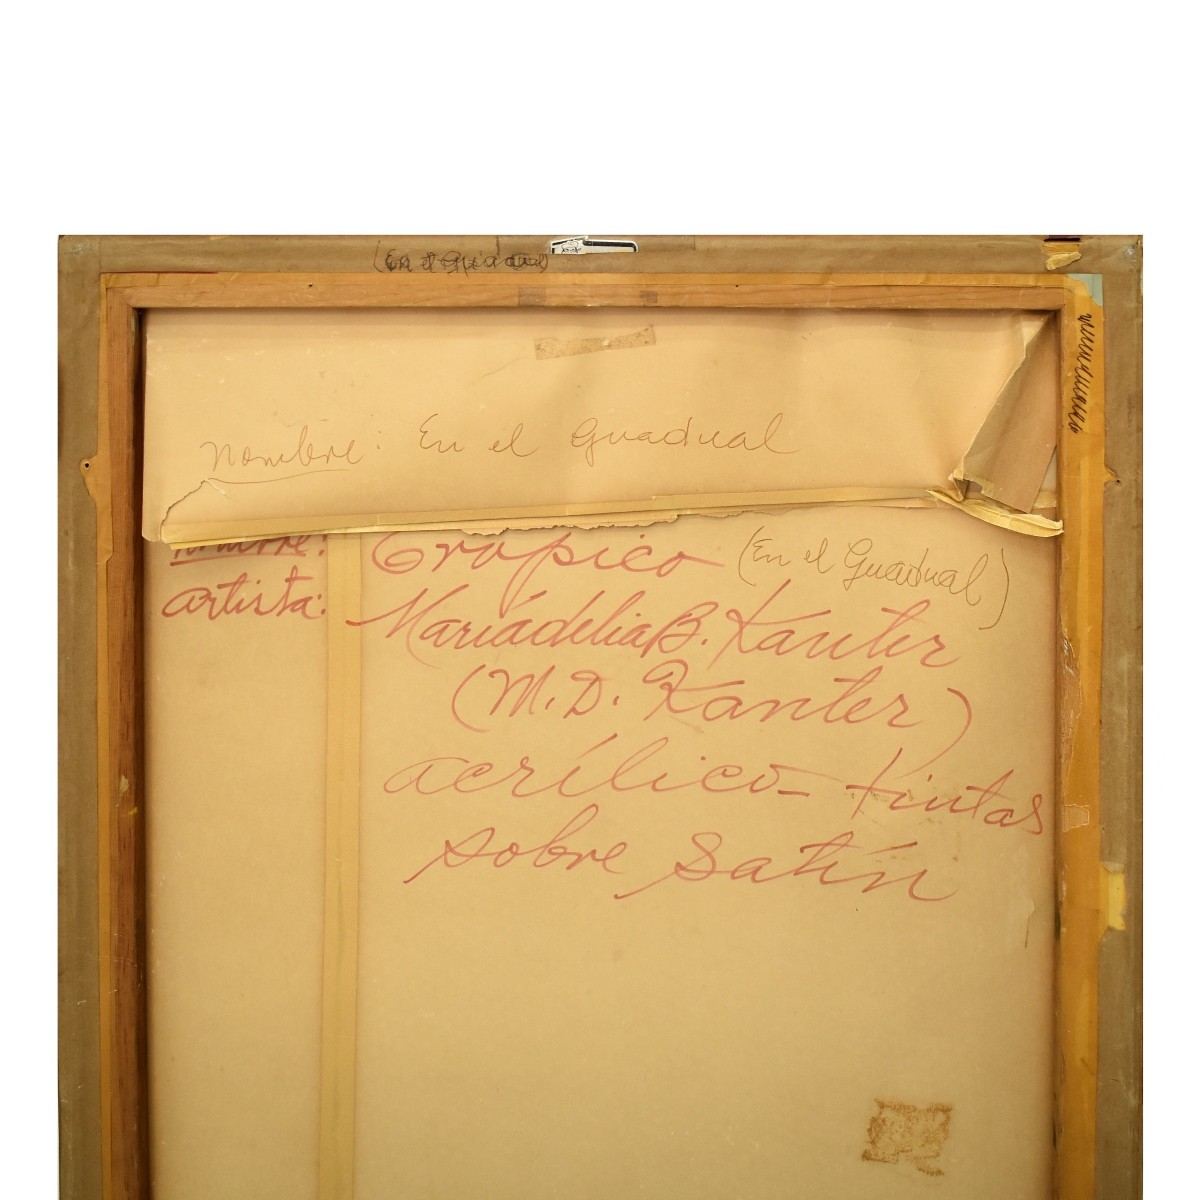 (En el Guadual)
Nombre: En el Guadual
nombre: Tropico (En el Guadual)
artista: Maríadelia B. Kanter
(M. D. Kanter)
acrílico - tintas
sobre satín